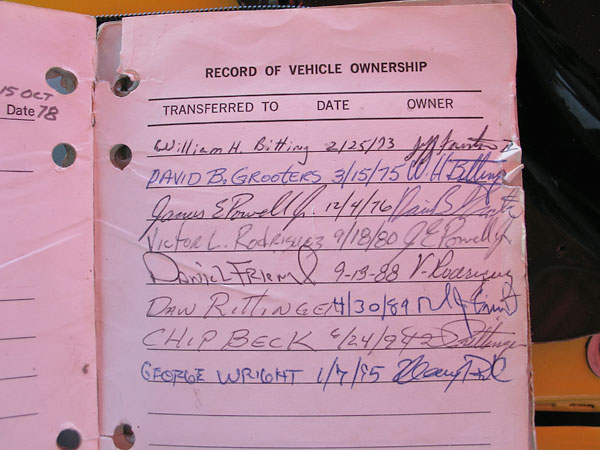 15 OCT
Date 78
RECORD OF VEHICLE OWNERSHIP
TRANSFERRED TO DATE OWNER
William H. Bitting 2/25/73
DAVID B. GROOTERS 3/15/75 W. H. Bitting
James E Powell Jr. 12/4/76 David B
Victor L. Rodriguez 9/18/80 J. E. Powell Jr
9-13-88 V. Rodriguez
DAN RITTINGER 4/30/89
CHIP BECK
GEORGE WRIGHT 1/7/95